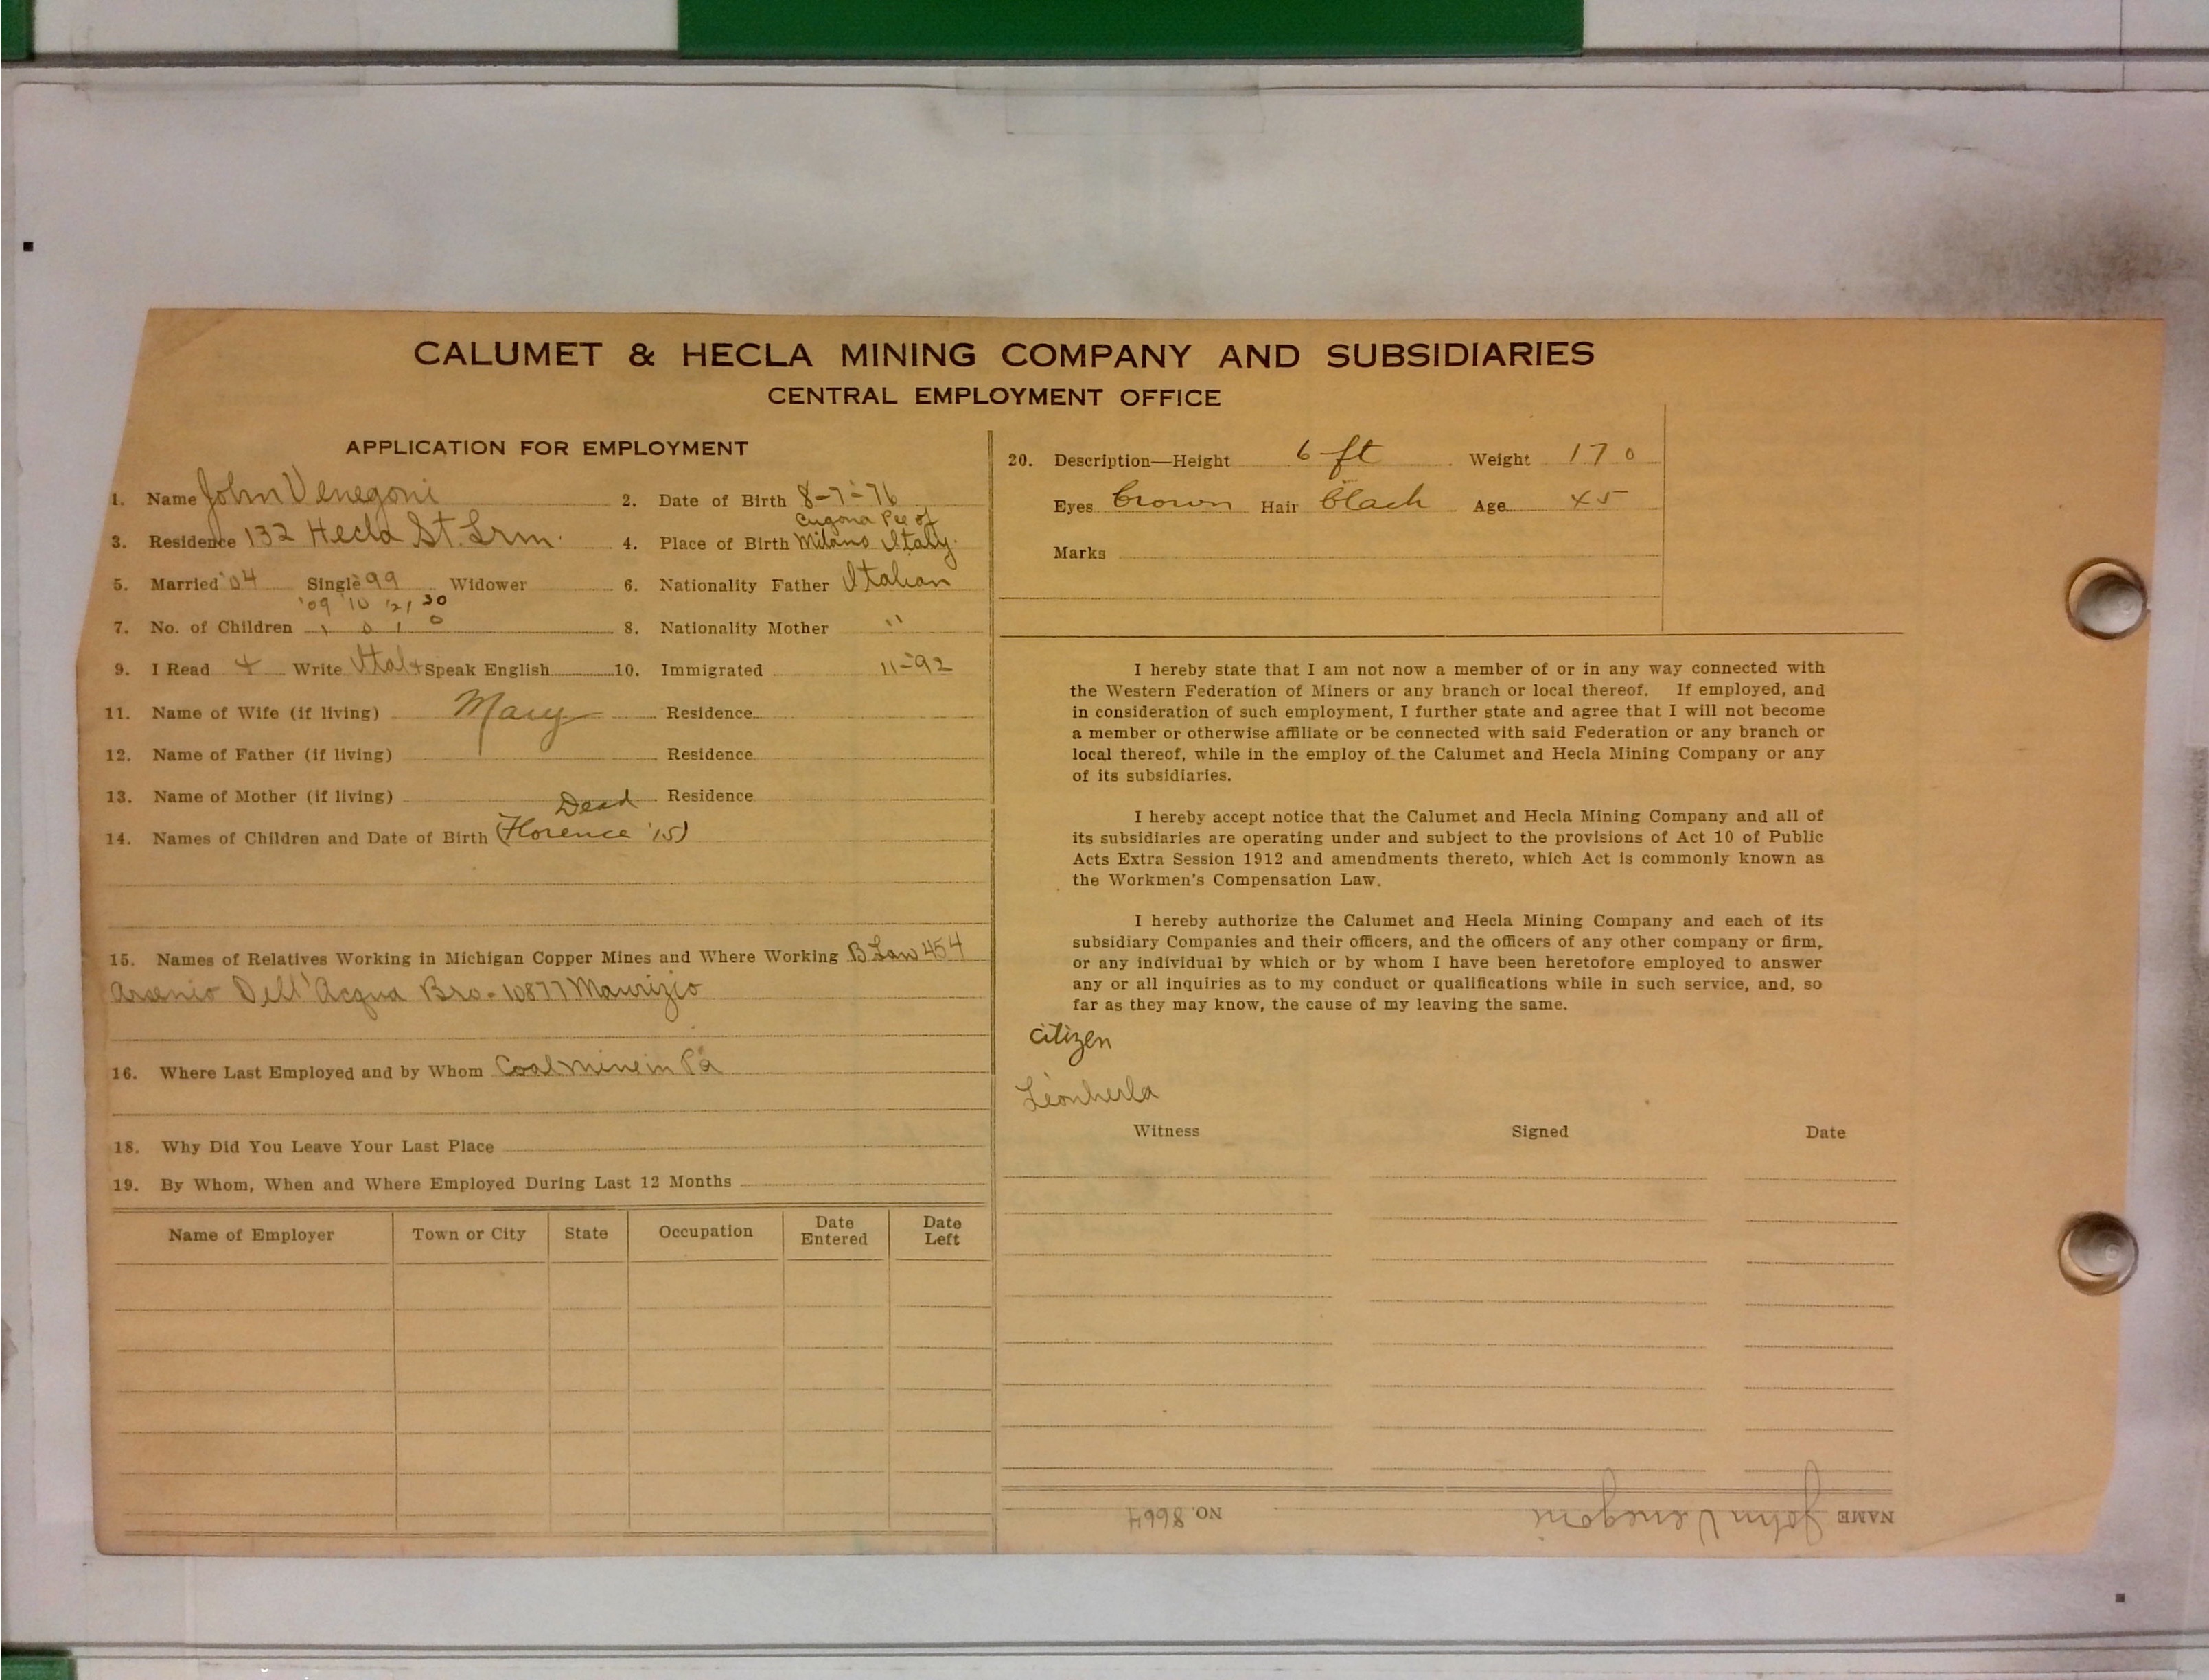 CALUMET & HECLA MINING COMPANY AND SUBSIDIARIES
CENTRAL EMPLOYMENT OFFICE
APPLICATION FOR EMPLOYMENT
1. Name John Venegoni 2. Date of Birth 8-7-76
3. Residence 132 Hecla St. Lrm. 4. Place of Birth Cugona Pce of Milano Italy.
5. Married '04 Single '99 Widower 6. Nationality Father Italian
'09 '10 '21 30
7. No. of Children 1 0 1 0 8. Nationality Mother "
9. I Read + Write Ital + Speak English 10. Immigrated 11-92
11. Name of Wife (if living) Mary Residence
12. Name of Father (if living) Residence
13. Name of Mother (if living) Residence
Dead
14. Names of Children and Date of Birth (Florence '15)
15. Names of Relatives Working in Michigan Copper Mines and Where Working B Law 454
Arsenio Dell'Acqua Bro - 10877 Maurizio
16. Where Last Employed and by Whom Coal mine in Pa
18. Why Did You Leave Your Last Place
19. By Whom, When and Where Employed During Last 12 Months
Name of Employer Town or City State Occupation Date Entered Date Left
20. Description—Height 6 ft Weight 170
Eyes brown Hair black Age 45
Marks
I hereby state that I am not now a member of or in any way connected with
the Western Federation of Miners or any branch or local thereof. If employed, and
in consideration of such employment, I further state and agree that I will not become
a member or otherwise affiliate or be connected with said Federation or any branch or
local thereof, while in the employ of the Calumet and Hecla Mining Company or any
of its subsidiaries.
I hereby accept notice that the Calumet and Hecla Mining Company and all of
its subsidiaries are operating under and subject to the provisions of Act 10 of Public
Acts Extra Session 1912 and amendments thereto, which Act is commonly known as
the Workmen's Compensation Law.
I hereby authorize the Calumet and Hecla Mining Company and each of its
subsidiary Companies and their officers, and the officers of any other company or firm,
or any individual by which or by whom I have been heretofore employed to answer
any or all inquiries as to my conduct or qualifications while in such service, and, so
far as they may know, the cause of my leaving the same.
citizen
Witness Signed Date
NAME John Venegoni NO. 8664